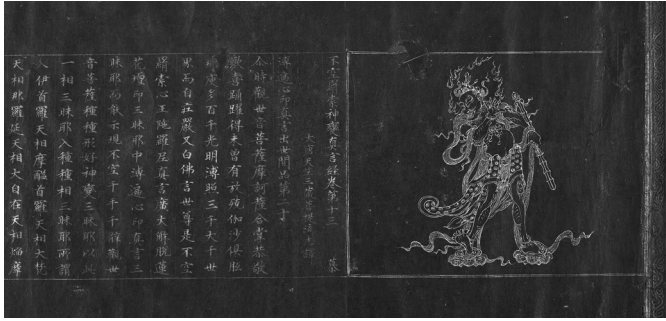 不空羂索神變真言經卷第十二 慕
大唐天竺三藏菩提流志譯
溥遍心印真言出世間品第二十
尒時觀世音菩薩摩訶薩合掌恭敬
歡喜踊躍得未曾有放殑伽沙俱胝
那庾多百千光明溥照三千大千世
界而自莊嚴又白佛言世尊是不空
羂索心王陁羅尼真言廣大解脫蓮
花壇印三昧耶中溥遍心印真言三
昧耶而能示現不空千千千殊觀世
音菩薩種種形好神變三昧耶以此
一相三昧耶入種種相三昧耶所謂
入伊首羅天相摩醯首羅天相大梵
天相那羅延天相大自在天相焰摩